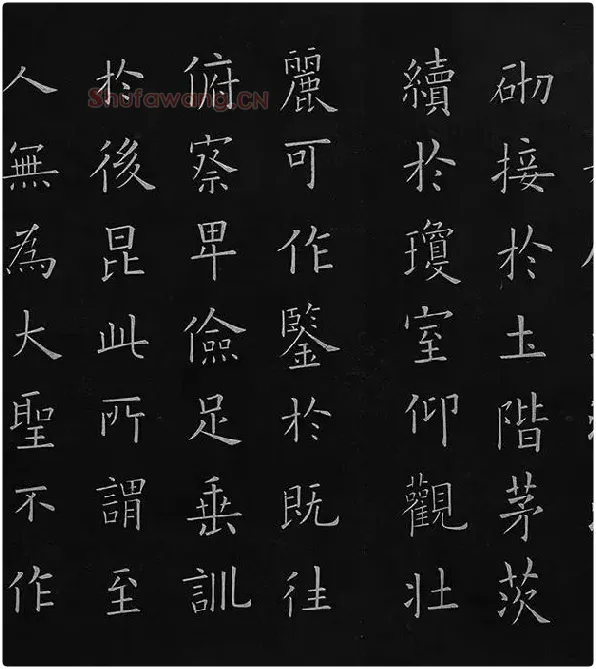 砌接於土階茅茨
續於瓊室仰觀壮
麗可作鑒於既往
俯察卑儉足垂訓
於後昆此所謂至
人無為大聖不作
Shufawang.CN